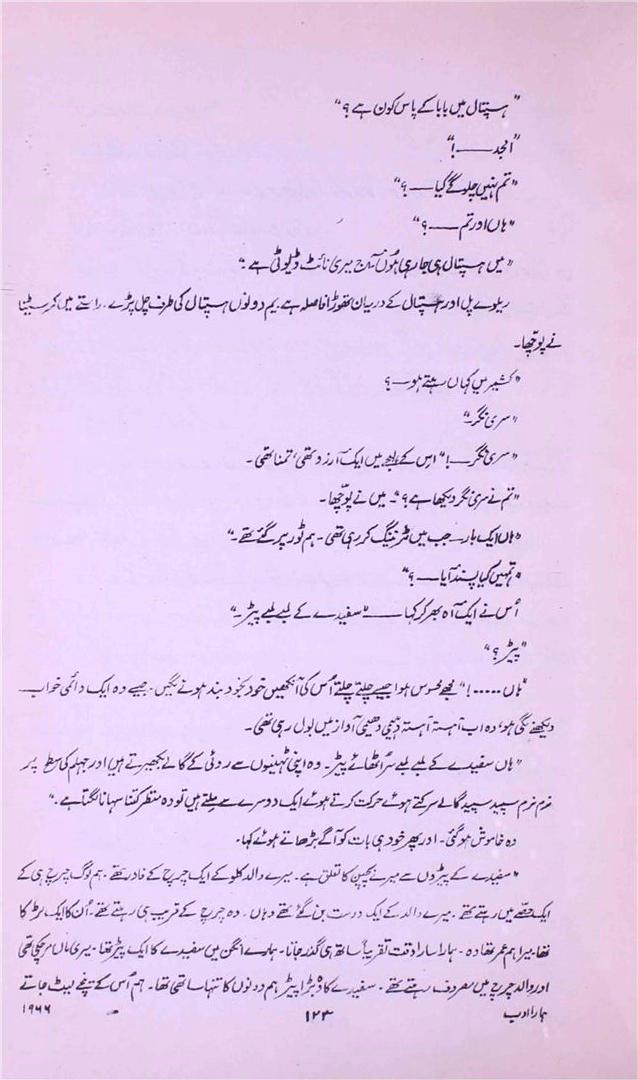 "ہسپتال میں بابا کے پاس کون ہے؟"
"امجد ——!"
"تم نہیں چلو گے گیا ——؟"
"ہاں اور تم ——؟"
"میں ہسپتال ہی جا رہی ہوں آج میری نائٹ ڈیوٹی ہے۔"
ریلوے پل اور ہسپتال کے درمیان تھوڑا فاصلہ ہے۔ ہم دونوں ہسپتال کی طرف چل پڑے۔ راستے میں کرسٹینا
نے پوچھا۔
"کشمیر میں کہاں رہتے ہو —؟
"سری نگر —"
"سری نگر —!" اس کے لہجے میں ایک آرزو تھی، تمنا تھی۔
"تم نے سری نگر دیکھا ہے؟"۔ میں نے پوچھا۔
"ہاں ایک بار — جب میں ٹریننگ کر رہی تھی۔ ہم ٹور پر گئے تھے۔"
"تمہیں کیا پسند آیا ——؟"
اُس نے ایک آہ بھر کر کہا —— "سفیدے کے لمبے لمبے پیڑ۔"
"پیڑ؟"
"ہاں .....!" مجھے محسوس ہوا جیسے چلتے چلتے اُس کی آنکھیں خود بخود بند ہونے لگیں۔ جیسے وہ ایک دائمی خواب
دیکھنے لگی ہو، وہ اب آہستہ آہستہ دھیمی دھیمی آواز میں بول رہی تھی۔
"ہاں سفیدے کے لمبے لمبے سر اُٹھائے پیڑ۔ وہ اپنی ٹہنیوں سے روئی کے گالے بکھیرتے ہیں اور جہلم کی سطح پر
نرم نرم سپید سپید گالے سرکتے ہوئے حرکت کرتے ہوئے ایک دوسرے سے ملتے ہیں تو وہ منظر کتنا سہانا لگتا ہے۔"
وہ خاموش ہو گئی۔ اور پھر خود ہی بات کو آگے بڑھاتے ہوئے کہا۔
"سفیدے کے پیڑوں سے میرے بچپن کا تعلق ہے۔ میرے والد کلو کے ایک چرچ کے فادر تھے۔ ہم لوگ چرچ ہی کے
ایک حصے میں رہتے تھے۔ میرے والد کے ایک دوست بن گئے تھے وہاں۔ وہ چرچ کے قریب ہی رہتے تھے۔ اُن کا ایک لڑکا
تھا۔ میرا ہم عمر تھا وہ۔ ہمارا سارا وقت تقریباً ساتھ ہی گذر جاتا۔ ہمارے آنگن میں سفیدے کا ایک پیڑ تھا۔ میری ماں مر چکی تھی
اور والد چرچ میں مصروف رہتے تھے۔ سفیدے کا وہ بڑا پیڑ ہم دونوں کا تنہا ساتھی تھا۔ ہم اُس کے نیچے لیٹ جاتے
ہمارا ادب
۱۲۳
۱۹۶۶